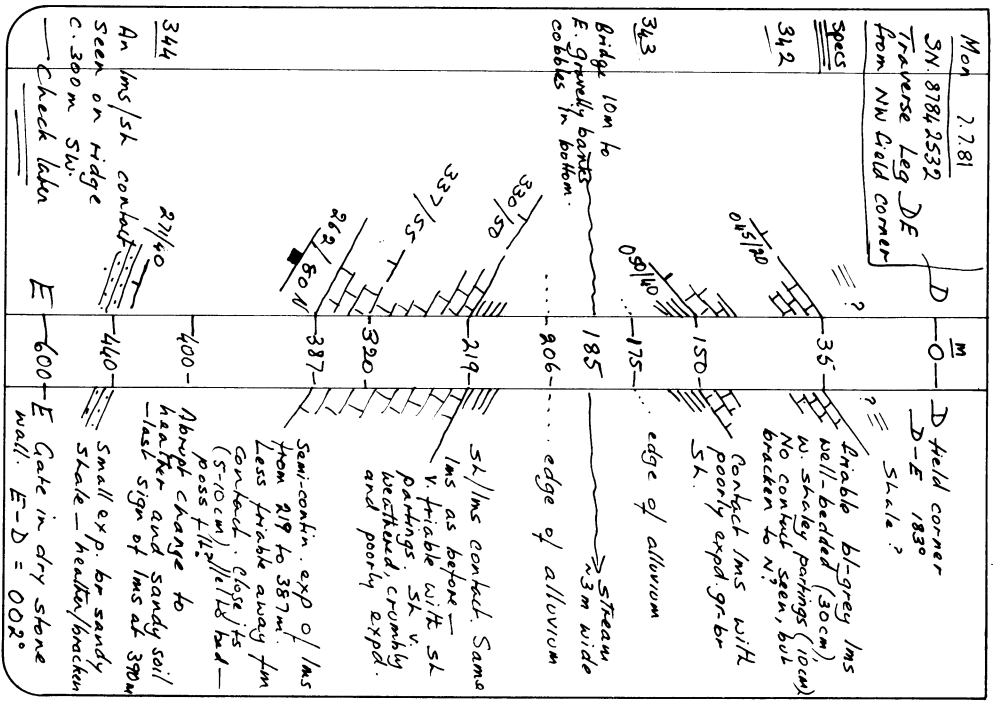 Mon 7.7.81
SN. 87842532
Traverse Leg DE
from NW field corner
Specs
342
343
Bridge 10m to
E. gravelly banks
cobbles in bottom.
344
An lms/sh contact
seen on ridge
c. 300m SW.
— Check later
D
?
045/20
050/40
330/50
337/55
262/80 N
271/40
E
m
0
35
150
175
185
206
219
320
387
400
440
600
D field corner
D-E 183°
? Shale?
friable bl-grey lms
well-bedded (30cm),
w. shaley partings (10cm)
No contact seen, but
bracken to N?
Contact lms with
poorly expd. gr-br
sh.
edge of alluvium
stream
~3m wide
edge of alluvium
sh/lms contact. Same
lms as before —
v. friable with sh
partings. sh v.
weathered, crumbly
and poorly expd.
Semi-contin. exp of lms
from 219 to 387m.
Less friable away fm
contact. Close jts
(5-10cm) //el to bed —
poss flt?
Abrupt change to
heather and sandy soil
— last sign of lms at 390m
Small exp. br sandy
shale — heather/bracken
E Gate in dry stone
wall. E-D = 002°